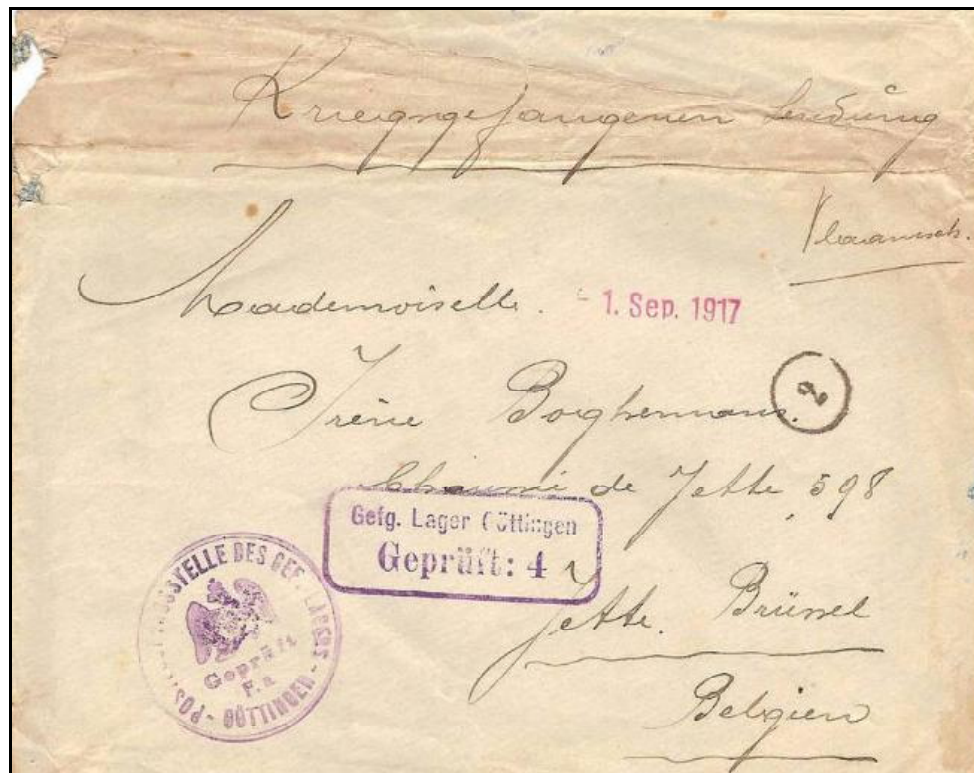 Kriegsgefangenen Sendung
Vlaamsch.
Mademoiselle.
1. Sep. 1917
2
Irène Borghermans.
de Jette 598
Gefg. Lager Göttingen
Geprüft: 4
Jette. Brüssel
Belgien
DES GEF. LAGERS - GÖTTINGEN -
Geprüft
F.a